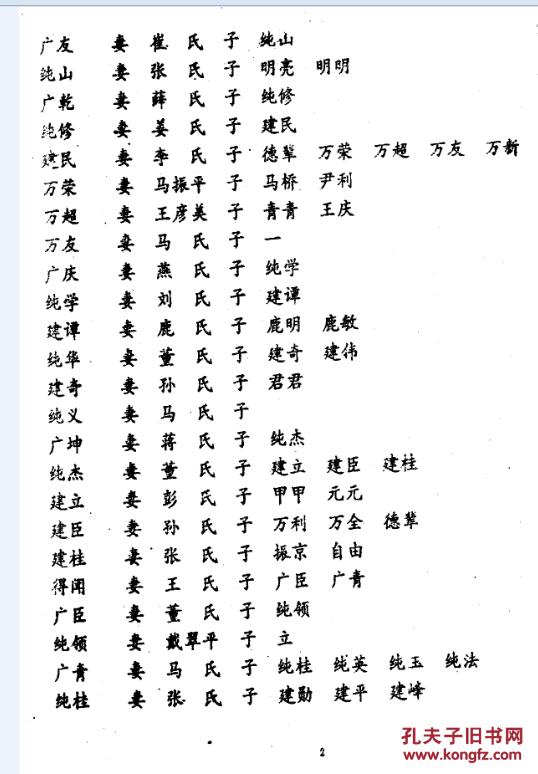 广友 妻 崔 氏 子 纯山
纯山 妻 张 氏 子 明亮 明明
广乾 妻 薛 氏 子 纯修
纯修 妻 姜 氏 子 建民
建民 妻 李 氏 子 德辈 万荣 万超 万友 万新
万荣 妻 马振平 子 马桥 尹利
万超 妻 王彦美 子 青青 王庆
万友 妻 马 氏 子 一
广庆 妻 燕 氏 子 纯学
纯学 妻 刘 氏 子 建谭
建谭 妻 鹿 氏 子 鹿明 鹿敏
纯华 妻 董 氏 子 建奇 建伟
建奇 妻 孙 氏 子 君君
纯义 妻 马 氏 子
广坤 妻 蒋 氏 子 纯杰
纯杰 妻 董 氏 子 建立 建臣 建桂
建立 妻 彭 氏 子 甲甲 元元
建臣 妻 孙 氏 子 万利 万全 德辈
建桂 妻 张 氏 子 振京 自由
得闻 妻 王 氏 子 广臣 广青
广臣 妻 董 氏 子 纯领
纯领 妻 戴翠平 子 立
广青 妻 马 氏 子 纯桂 纯英 纯玉 纯法
纯桂 妻 张 氏 子 建勋 建平 建峰
2
孔夫子旧书网
www.kongfz.com